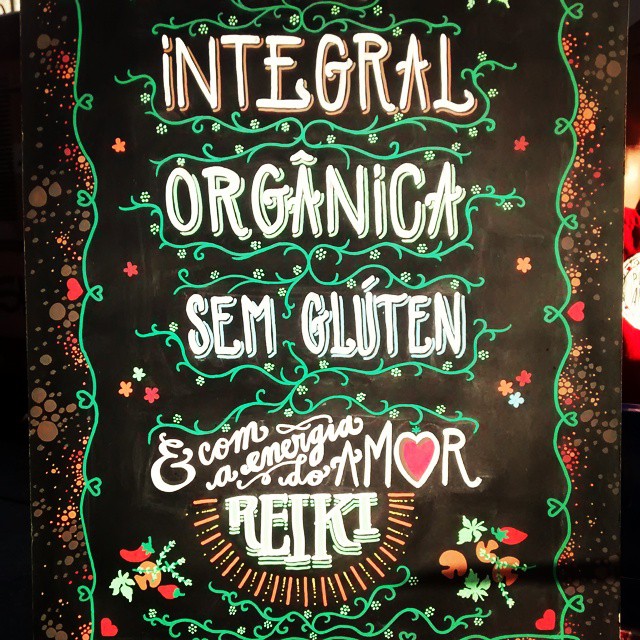 iNTEGRAL
ORGÂNiCA
SEM GLÚTEN
E com a energia do AMOR
REIKI